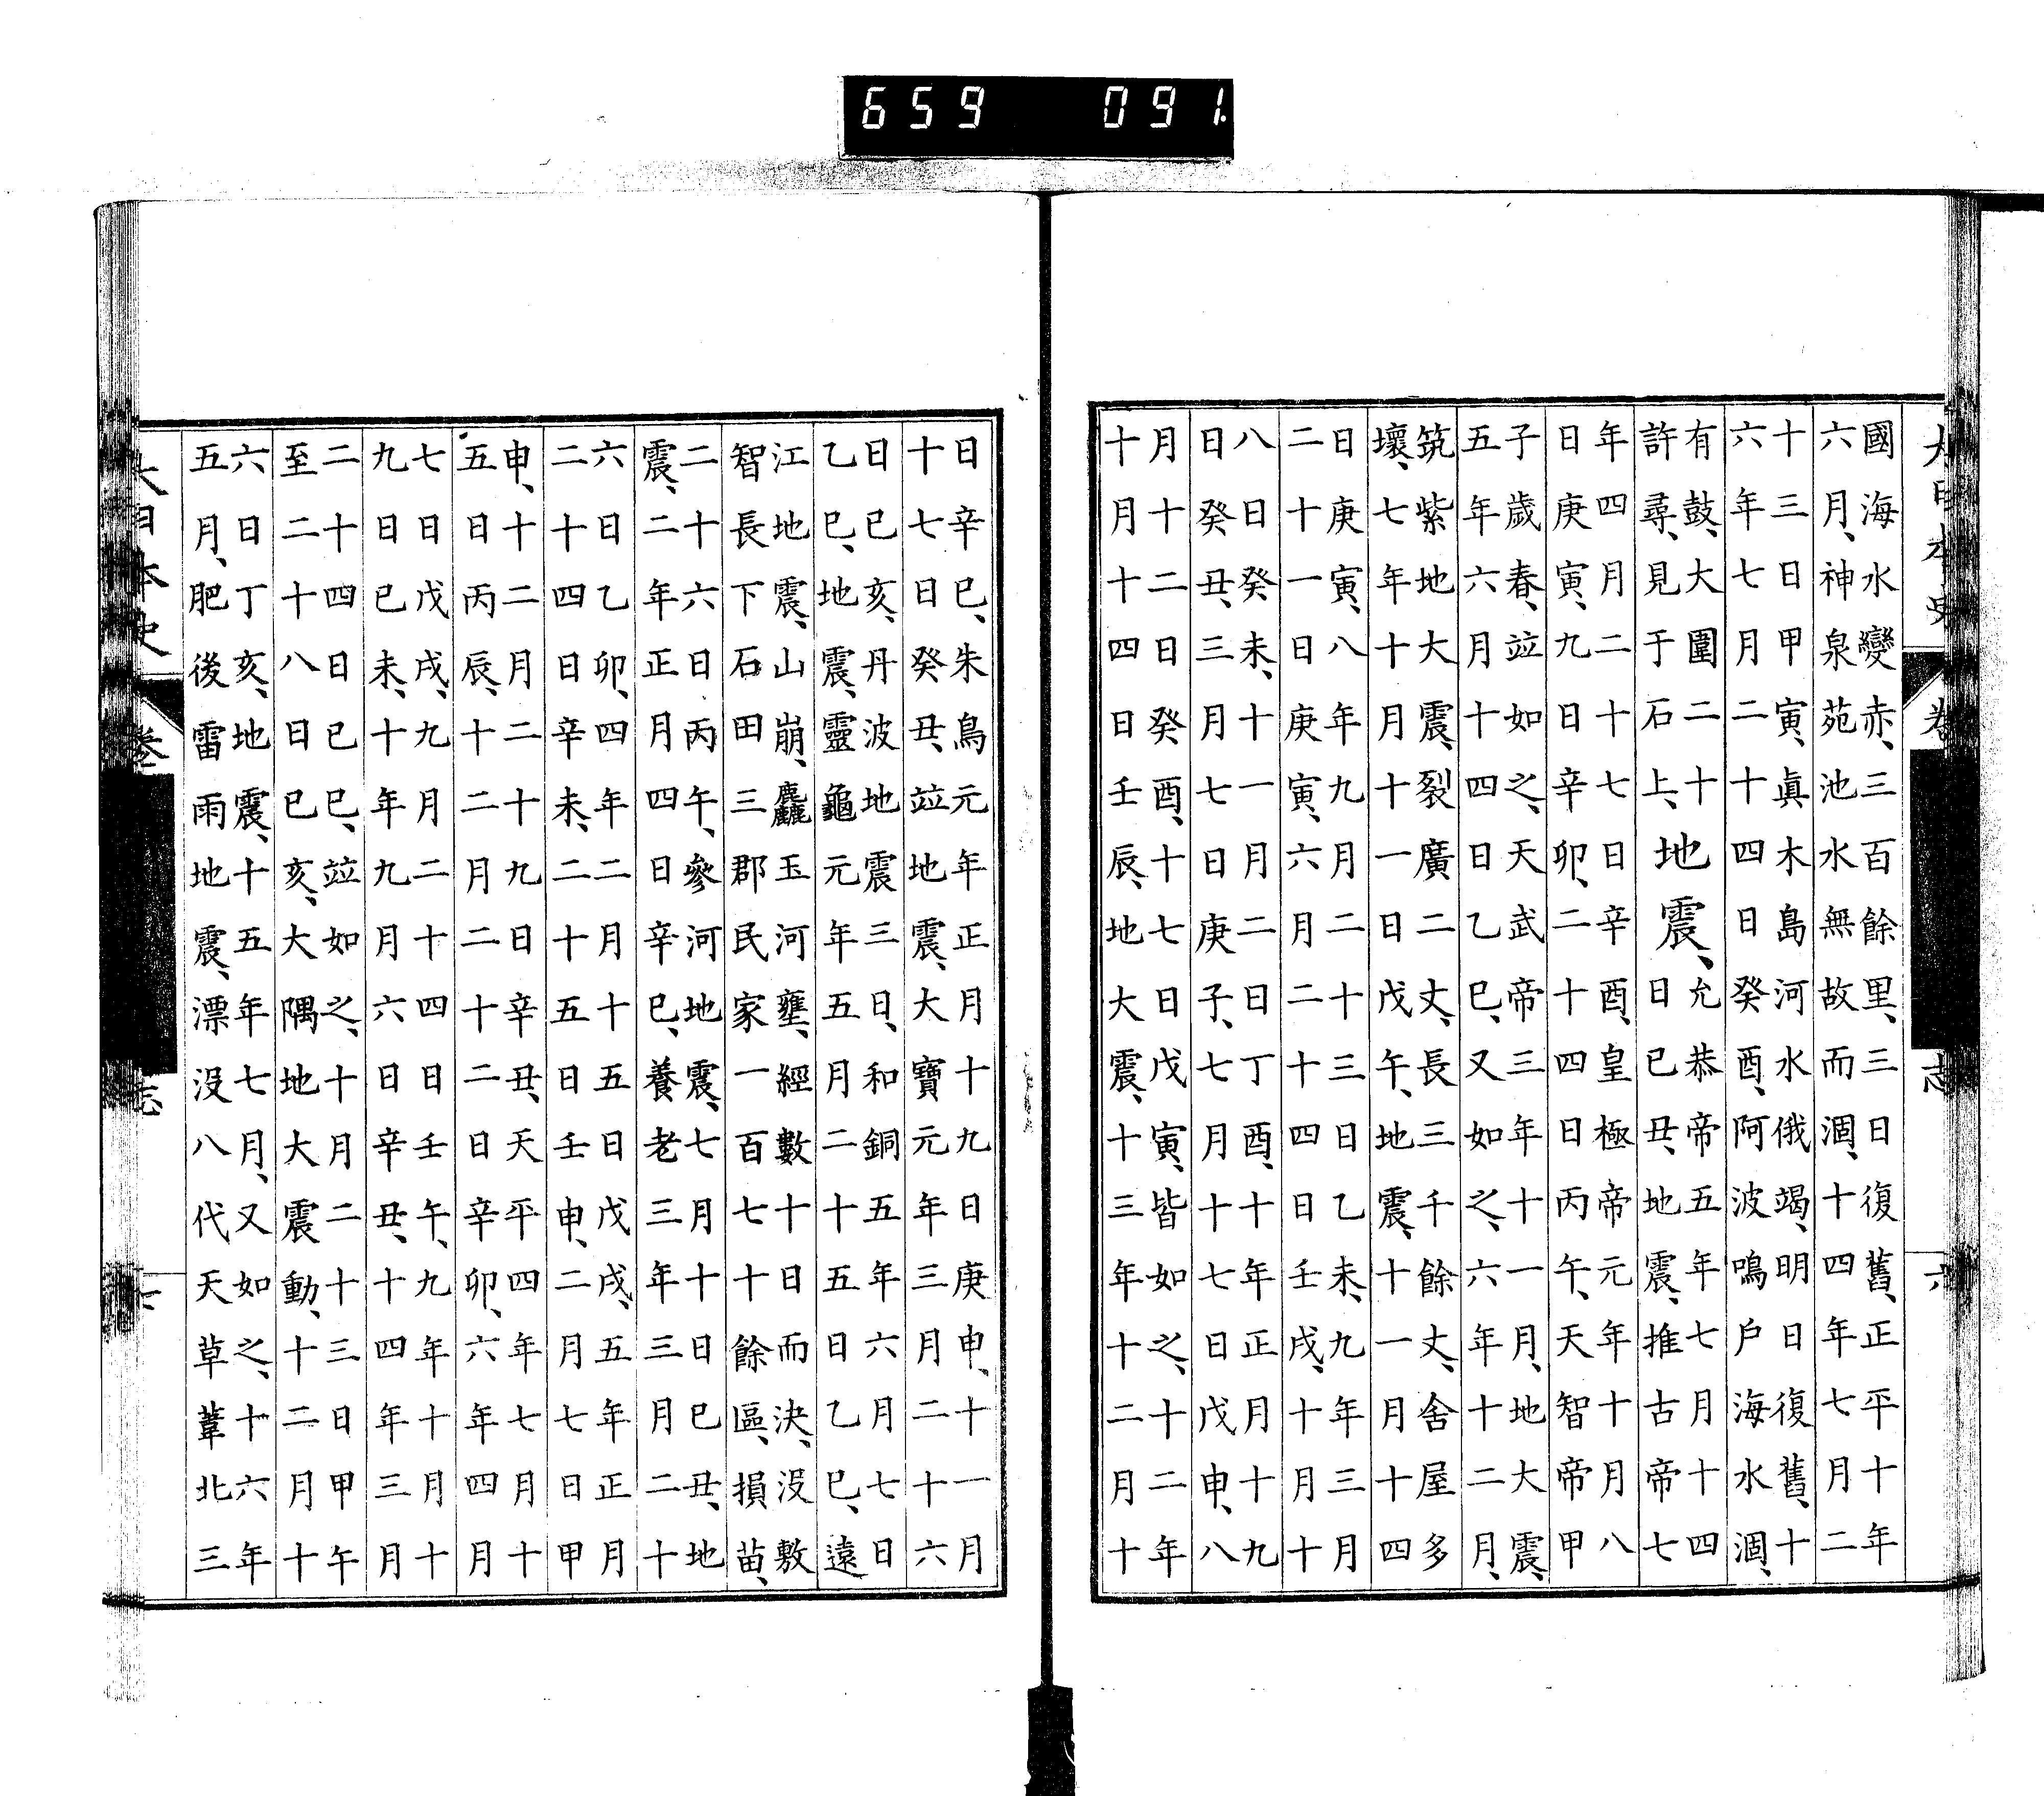 659 091.
大日本史 卷 志 六
國海水變赤、三百餘里、三日復舊、正平十年
六月、神泉苑池水無故而涸、十四年七月二
十三日甲寅、眞木島河水俄竭、明日復舊、十
六年七月二十四日癸酉、阿波鳴戸海水涸、
有鼓、大圍二十
許尋、見于石上、
地震、
允恭帝五年七月十四
日己丑、地震、推古帝七
年四月二十七日辛酉、皇極帝元年十月八
日庚寅、九日辛卯、二十四日丙午、天智帝甲
子歲春、竝如之、天武帝三年十一月、地大震、
五年六月十四日乙巳、又如之、六年十二月、
筑紫地大震、裂廣二丈、長三千餘丈、舍屋多
壞、七年十月十一日戊午、地震、十一月十四
日庚寅、八年九月二十三日乙未、九年三月
二十一日庚寅、六月二十四日壬戌、十月十
八日癸未、十一月二日丁酉、十年正月十九
日癸丑、三月七日庚子、七月十七日戊申、八
月十二日癸酉、十七日戊寅、皆如之、十二年
十月十四日壬辰、地大震、十三年十二月十
日辛巳、朱鳥元年正月十九日庚申、十一月
十七日癸丑、竝地震、大寶元年三月二十六
日己亥、丹波地震三日、和銅五年六月七日
乙巳、地震、靈龜元年五月二十五日乙巳、遠
江地震、山崩、麤玉河壅、經數十日而決、沒敷
智長下石田三郡民家一百七十餘區、損苗、
二十六日丙午、參河地震、七月十日己丑、地
震、二年正月四日辛巳、養老三年三月二十
六日乙卯、四年二月十五日戊戌、五年正月
二十四日辛未、二十五日壬申、二月七日甲
申、十二月二十九日辛丑、天平四年七月十
五日丙辰、十二月二十二日辛卯、六年四月
七日戊戌、九月二十四日壬午、九年十月十
九日己未、十年九月六日辛丑、十四年三月
二十四日己巳、竝如之、十月二十三日甲午
至二十八日己亥、大隅地大震動、十二月十
六日丁亥、地震、十五年七月、又如之、十六年
五月、肥後雷雨地震、漂沒八代天草葦北三
大日本史 卷 志 七